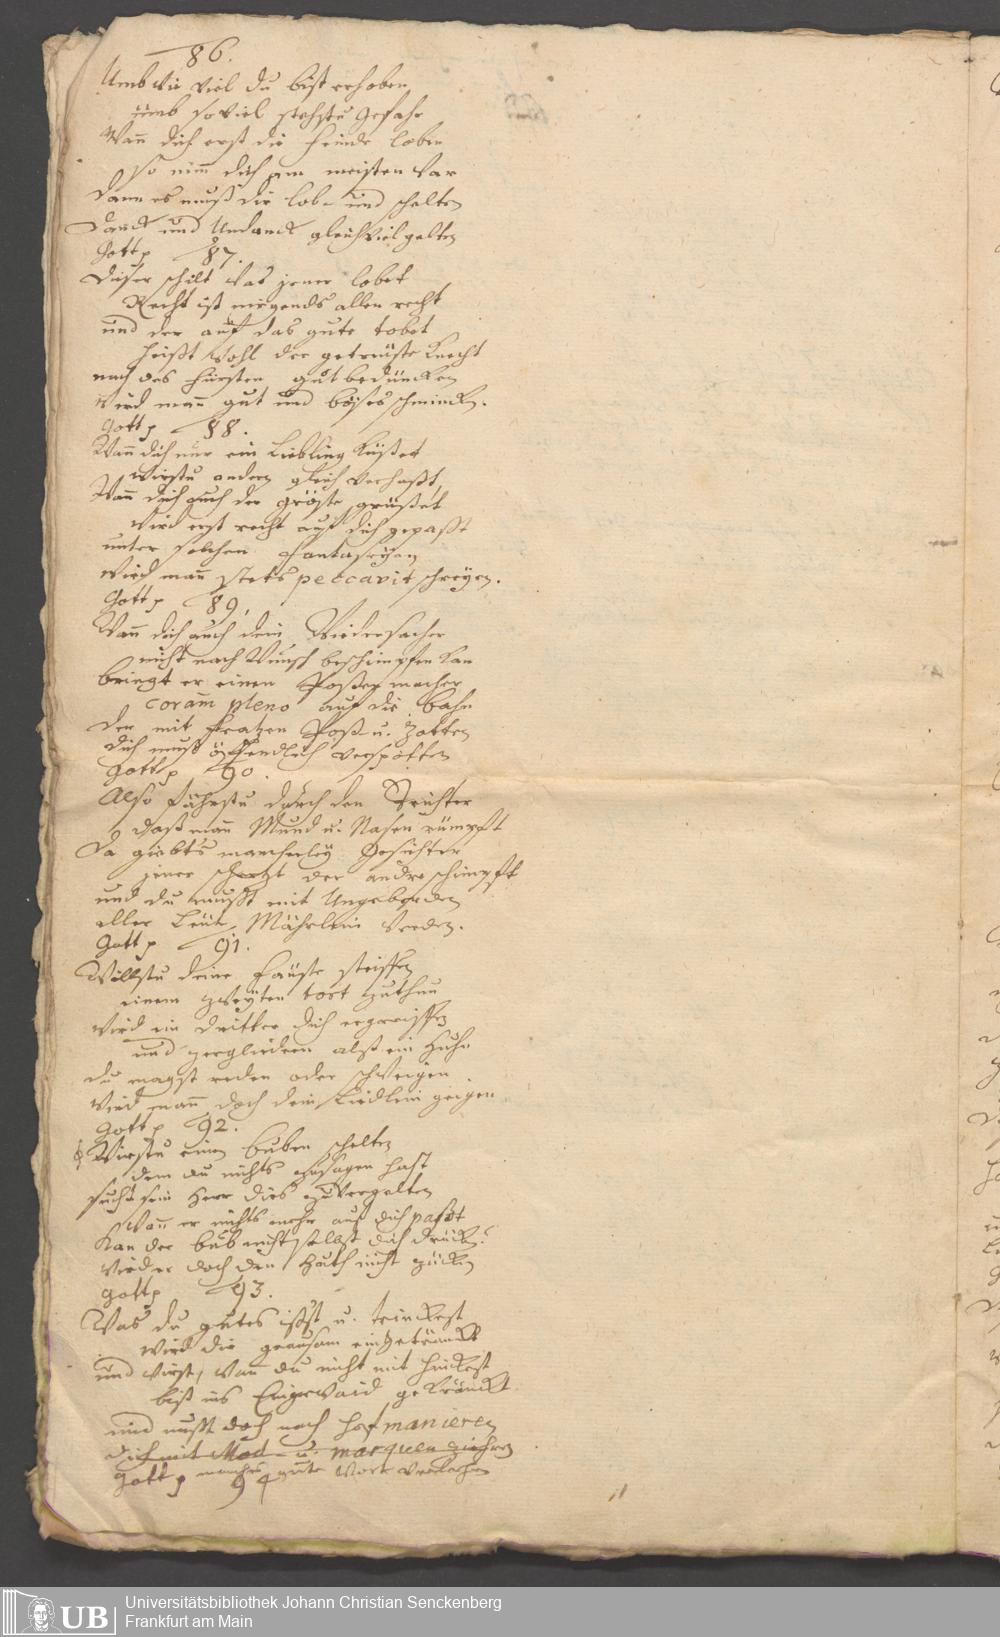 86.
Umb wie viel du bist erhoben
umb so viel stehstu gefahr
Wañ dich erst die Feinde loben
So nim̃ dich am meisten war
Dann es muß dir lob- und schelten
Danck und Undanck gleich viel gelten
Gott p 87.
Dieser schilt was jener lobet
Recht ist nirgends allen recht
und der auf das gute tobet
heißt wohl der getreüste Knecht
nach des Fürsten gutbedüncken
wird mañ gut und böses schmincken.
Gott p 88.
Wañ dich nur ein Liebling küßet
wirstu andern gleich verhaßt,
Wañ dich auch der gröste grüßet
wird erst recht auf dich gepaßt
unter solchen fantaseyen
wird mañ stets peccavit schreyen.
Gott p 89.
Wañ dich auch dein Wiedersacher
nicht nach Wunsch beschimpfen kan
bringt er einen Poßenmacher
coram pleno auf die bahn
der mit fratzen Poß u. Zotten
dich muß öffendlich verspotten
Gott p 90.
Also fährstu durch den Trichter
daß mañ Mund u. Nasen rümpft
Da giebts mancherley Gesichter
jener schertzt der andre schimpft
und du mußt mit Ungeberden
aller Leüte Mährlein werden.
Gott p 91.
Willstu deine Fäuste steiffen
einem zweyten tort zuthun
wird ein dritter dich ergreiffen
und zergliedern alß ein Huhn
du magst reden oder schweigen
wird mañ doch dein Liedlein geigen
Gott p 92.
Wirstu einen buben schelten
dem du nichts zusagen hast
sucht sein Herr dies zuvergelten
Wañ er nichts mehr auf dich passt
Kan der bub nicht selbst dich drücken
wird er doch den Huth nicht zücken
Gott p 93.
Was du gutes issst u. trinckest
wird dir grausam eingetränckt
und wirst, wañ du nicht mit hinckest
biß ins Eingewaid gekränckt
und must doch nach hofmanieren
dich mit Mod- u. marquen ziehren
manches gute Wort verliehren
Gott p 94
Universitätsbibliothek Johann Christian Senckenberg
Frankfurt am Main
UB